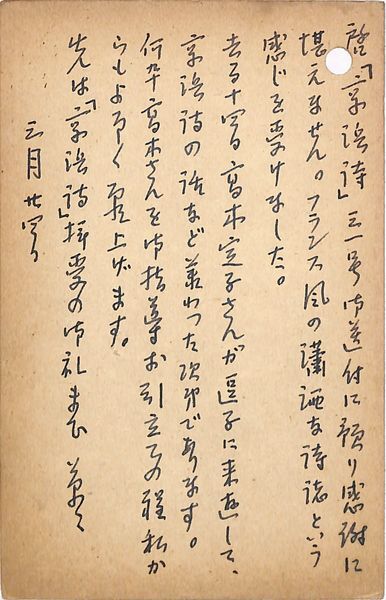 啓「京浜詩」三一号御送付に預り感謝に
堪えません。フランス風の瀟洒な詩誌という
感じを受けました。
去る十四日高木定子さんが逗子に来遊して、
京浜詩の話など承わった次第であります。
何卒高木さんを御指導お引立ての程私か
らもよろしく願上げます。
先は「京浜詩」拝受の御礼まで 草々
三月廿四日